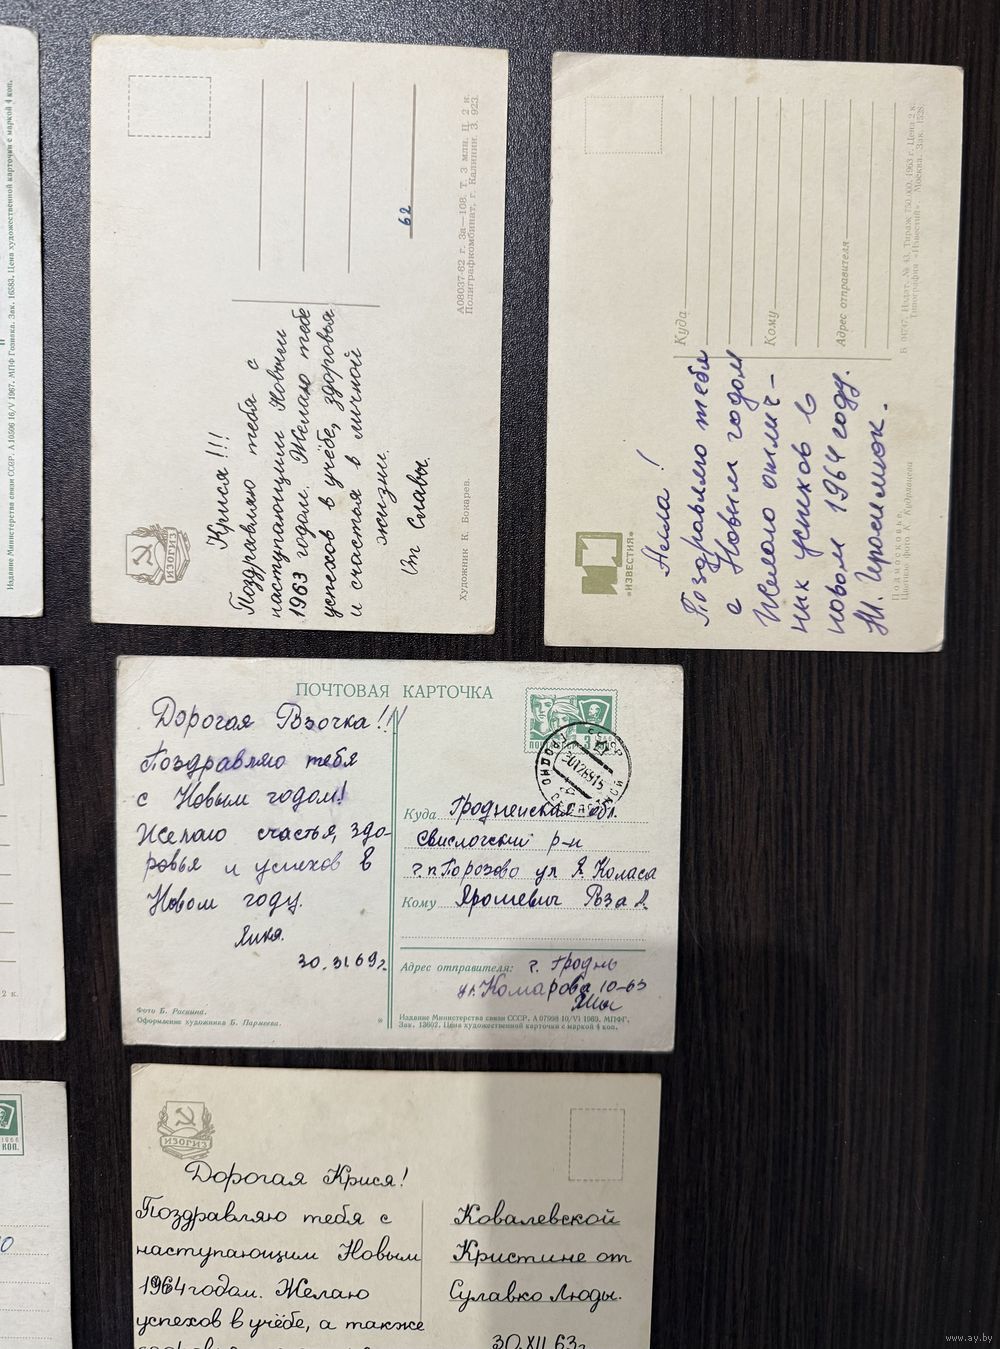 Издание Министерства связи СССР. А 10596 16/V 1967. МПФ Гознака. Зак. 16583. Цена художественной карточки с маркой 4 коп.
ИЗОГИЗ
Крися!!!
Поздравляю тебя с
наступающим Новым
1963 годом. Желаю тебе
успехов в учёбе, здоровья
и счастья в личной
жизни.
От Славы.
62
Художник К. Бокарев.
А08037-62 г. За—108. Т. 3 млн. Ц. 2 к.
Полиграфкомбинат, г. Калинин. З. 923.
«ИЗВЕСТИЯ»
Нелла!
Поздравляю тебя
с Новым годом
Желаю отлич-
ных успехов в
новом 1964 году.
Куда
Кому
Адрес отправителя
Подмосковье.
Цветное фото К. Кудрявцева
Издат. № 43. Тираж 1963 г. Цена 2 к.
Типография «Известий». Москва. Зак. 1528.
ПОЧТОВАЯ КАРТОЧКА
Дорогая Рэзочка!!!
Поздравляю тебя
с Новым годом!
Желаю счастья, здо-
ровья и успехов в
Новом году.
Яния.
30. 69г.
Фото Б. Раскина.
Оформление художника Б. Пармеева.
Куда Гродненская обл.
Свислочский р-н
г.п Порозово ул Я. Коласа
Кому Ярошевич Рэза А.
Адрес отправителя: г. Гродно
ул. Комарова 10-63
Издание Министерства связи СССР. А 07998 10/VI 1969. МПФГ.
Зак. 13602. Цена художественной карточки с маркой 4 коп.
2 к.
1966
КОП.
ИЗОГИЗ
Дорогая Крися!
Поздравляю тебя с
наступающим Новым
1964 годом. Желаю
успехов в учёбе, а также
Ковалевской
Кристине от
Сулавко Люды.
30.XII 63г.
www.ay.by